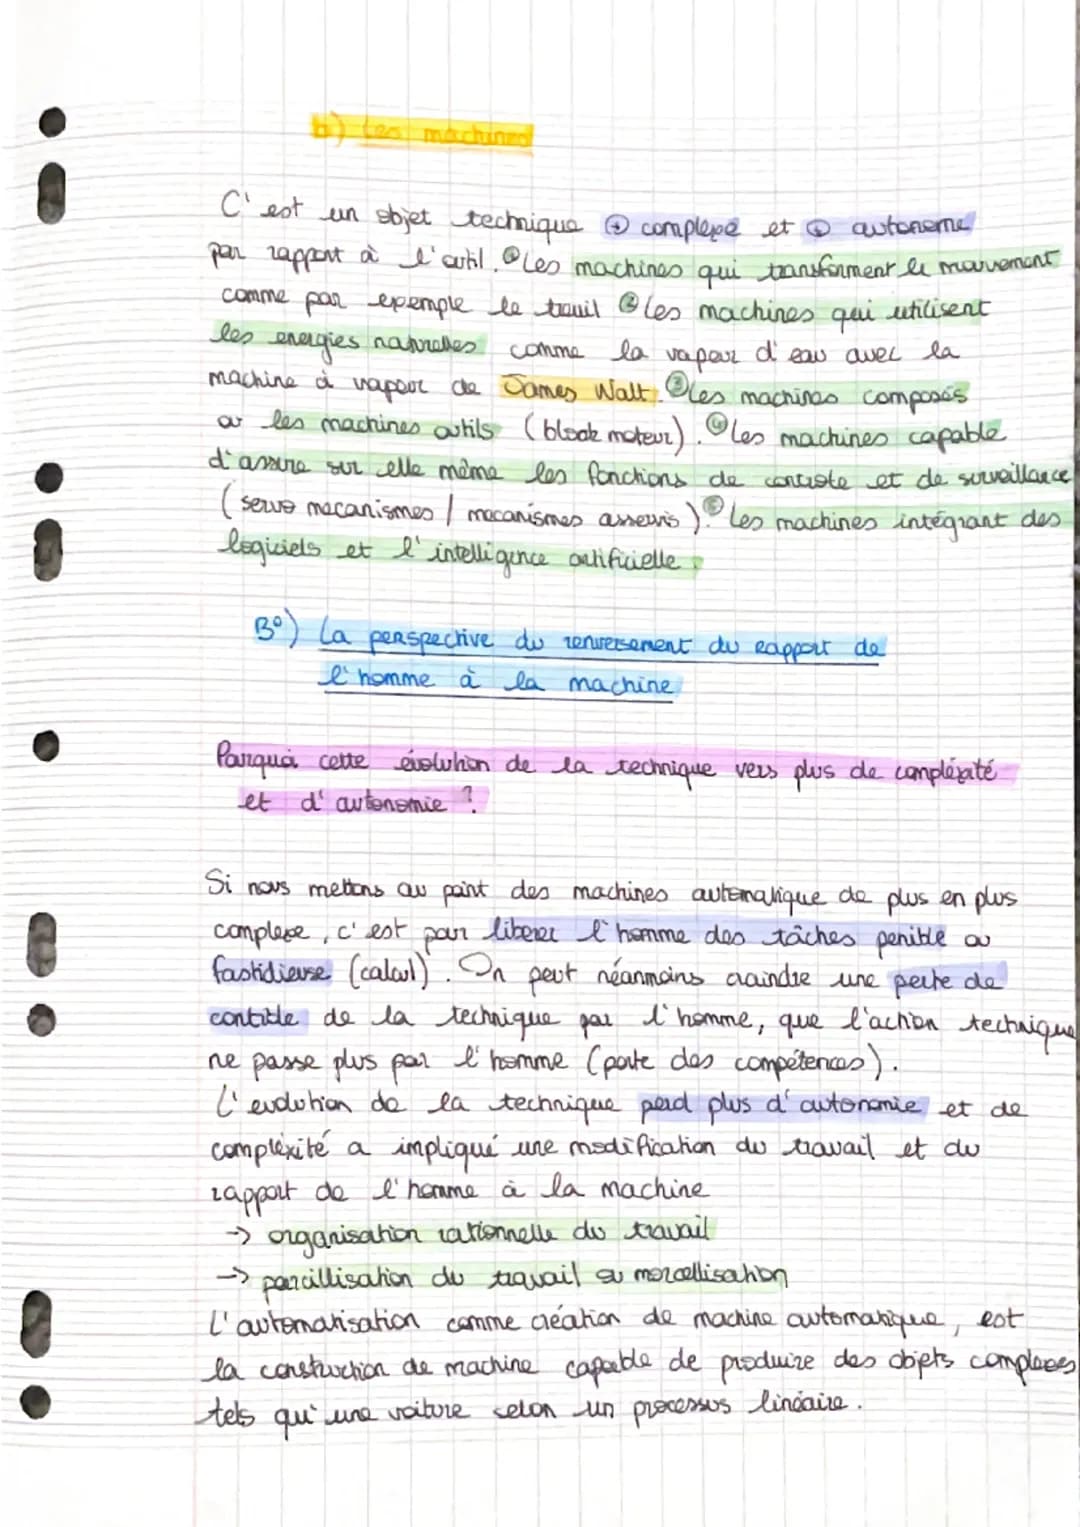 b) Les machines
C'est un objet technique ⊕ complexe et ⊕ autonome
par rapport à l'outil. ① Les machines qui transforment le mouvement
comme par exemple le treuil ② Les machines qui utilisent
les energies naturelles comme la vapeur d'eau avec la
machine à vapeur de James Walt. ③ Les machines composés
ou les machines outils (block moteur). ④ Les machines capable
d'assure sur elle même les fonctions de controle et de surveillance
(servo mecanismes / mecanismes asseuris). ⑤ Les machines intégrant des
logiciels et l'intelligence artificielle.
B°) La perspective du renversement du rapport de
l'homme à la machine
Pourquoi cette évolution de la technique vers plus de compléxité
et d'autonomie ?
Si nous mettons au point des machines automatique de plus en plus
complexe, c'est pour liberer l'homme des tâches penible ou
fastidieuse (calcul). On peut néanmoins craindre une perte de
contrôle de la technique par l'homme, que l'action technique
ne passe plus par l'homme (perte des compétences).
L'evolution de la technique perd plus d'autonomie et de
compléxité a impliqué une modification du travail et du
rapport de l'homme à la machine
-> organisation rationnelle du travail
-> parcillisation du travail ou morcellisation
L'automatisation comme création de machine automatique, est
la construction de machine capable de produire des objets complexes
tels qu'une voiture selon un processus linéaire.